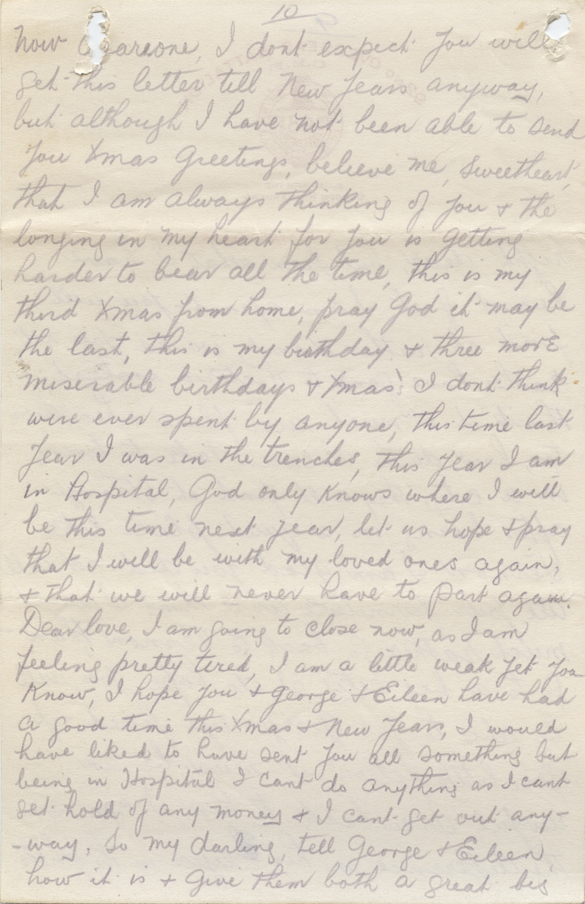 10
Now Dearone, I dont expect you will
get this letter till New Years anyway,
but although I have not been able to send
you Xmas Greetings, believe me, sweetheart,
that I am always thinking of you & the
longing in my heart for you is getting
harder to bear all the time, this is my
third Xmas from home, pray God it may be
the last, this is my birthday & three more
miserable birthdays & Xmas' I dont think
were ever spent by anyone, this time last
year I was in the trenches, this year I am
in Hospital, God only knows where I will
be this time next year, let us hope & pray
that I will be with my loved ones again,
& that we will never have to part again.
Dear love, I am going to close now, as I am
feeling pretty tired, I am a little weak yet you
know, I hope you & George & Eileen have had
a good time this Xmas & New Years, I would
have liked to have sent you all something but
being in Hospital I cant do anything as I cant
get hold of any money & I cant get out any-
-way. So my darling, tell George & Eileen,
how it is & give them both a great big